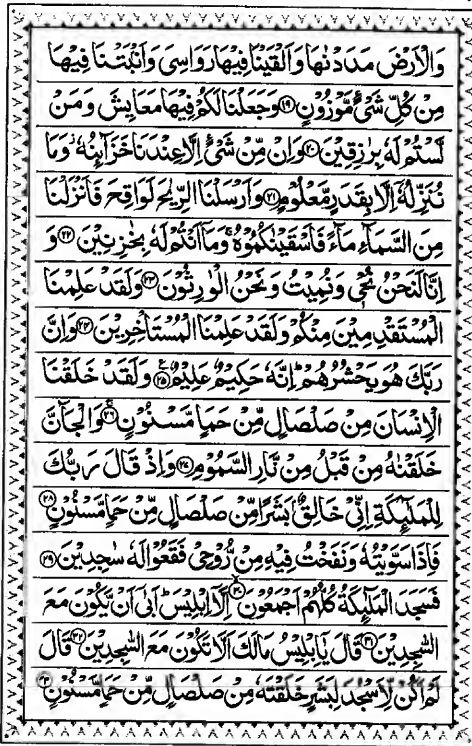 وَالْاَرْضَ مَدَدْنٰهَا وَاَلْقَيْنَا فِيْهَا رَوَاسِيَ وَاَنْۢبَتْنَا فِيْهَا
مِنْ كُلِّ شَيْءٍ مَّوْزُوْنٍ ۝۱۹ وَجَعَلْنَا لَكُمْ فِيْهَا مَعَايِشَ وَمَنْ
لَّسْتُمْ لَهٗ بِرٰزِقِيْنَ ۝۲۰ وَاِنْ مِّنْ شَيْءٍ اِلَّا عِنْدَنَا خَزَآئِنُهٗ ۫ وَمَا
نُنَزِّلُهٗٓ اِلَّا بِقَدَرٍ مَّعْلُوْمٍ ۝۲۱ وَاَرْسَلْنَا الرِّيٰحَ لَوَاقِحَ فَاَنْزَلْنَا
مِنَ السَّمَآءِ مَآءً فَاَسْقَيْنٰكُمُوْهُ ۚ وَمَآ اَنْتُمْ لَهٗ بِخٰزِنِيْنَ ۝۲۲ وَ
اِنَّا لَنَحْنُ نُحْيٖ وَنُمِيْتُ وَنَحْنُ الْوٰرِثُوْنَ ۝۲۳ وَلَقَدْ عَلِمْنَا
الْمُسْتَقْدِمِيْنَ مِنْكُمْ وَلَقَدْ عَلِمْنَا الْمُسْتَاْخِرِيْنَ ۝۲۴ وَاِنَّ
رَبَّكَ هُوَ يَحْشُرُهُمْ ؕ اِنَّهٗ حَكِيْمٌ عَلِيْمٌ ۝۲۵ وَلَقَدْ خَلَقْنَا
الْاِنْسَانَ مِنْ صَلْصَالٍ مِّنْ حَمَاٍ مَّسْنُوْنٍ ۝۲۶ وَالْجَآنَّ
خَلَقْنٰهُ مِنْ قَبْلُ مِنْ نَّارِ السَّمُوْمِ ۝۲۷ وَاِذْ قَالَ رَبُّكَ
لِلْمَلٰٓئِكَةِ اِنِّيْ خَالِقٌۢ بَشَرًا مِّنْ صَلْصَالٍ مِّنْ حَمَاٍ مَّسْنُوْنٍ ۝۲۸
فَاِذَا سَوَّيْتُهٗ وَنَفَخْتُ فِيْهِ مِنْ رُّوْحِيْ فَقَعُوْا لَهٗ سٰجِدِيْنَ ۝۲۹
فَسَجَدَ الْمَلٰٓئِكَةُ كُلُّهُمْ اَجْمَعُوْنَ ۝۳۰ اِلَّآ اِبْلِيْسَ ؕ اَبٰٓى اَنْ يَّكُوْنَ مَعَ
السّٰجِدِيْنَ ۝۳۱ قَالَ يٰٓاِبْلِيْسُ مَالَكَ اَلَّا تَكُوْنَ مَعَ السّٰجِدِيْنَ ۝۳۲ قَالَ
لَمْ اَكُنْ لِّاَسْجُدَ لِبَشَرٍ خَلَقْتَهٗ مِنْ صَلْصَالٍ مِّنْ حَمَاٍ مَّسْنُوْنٍ ۝۳۳